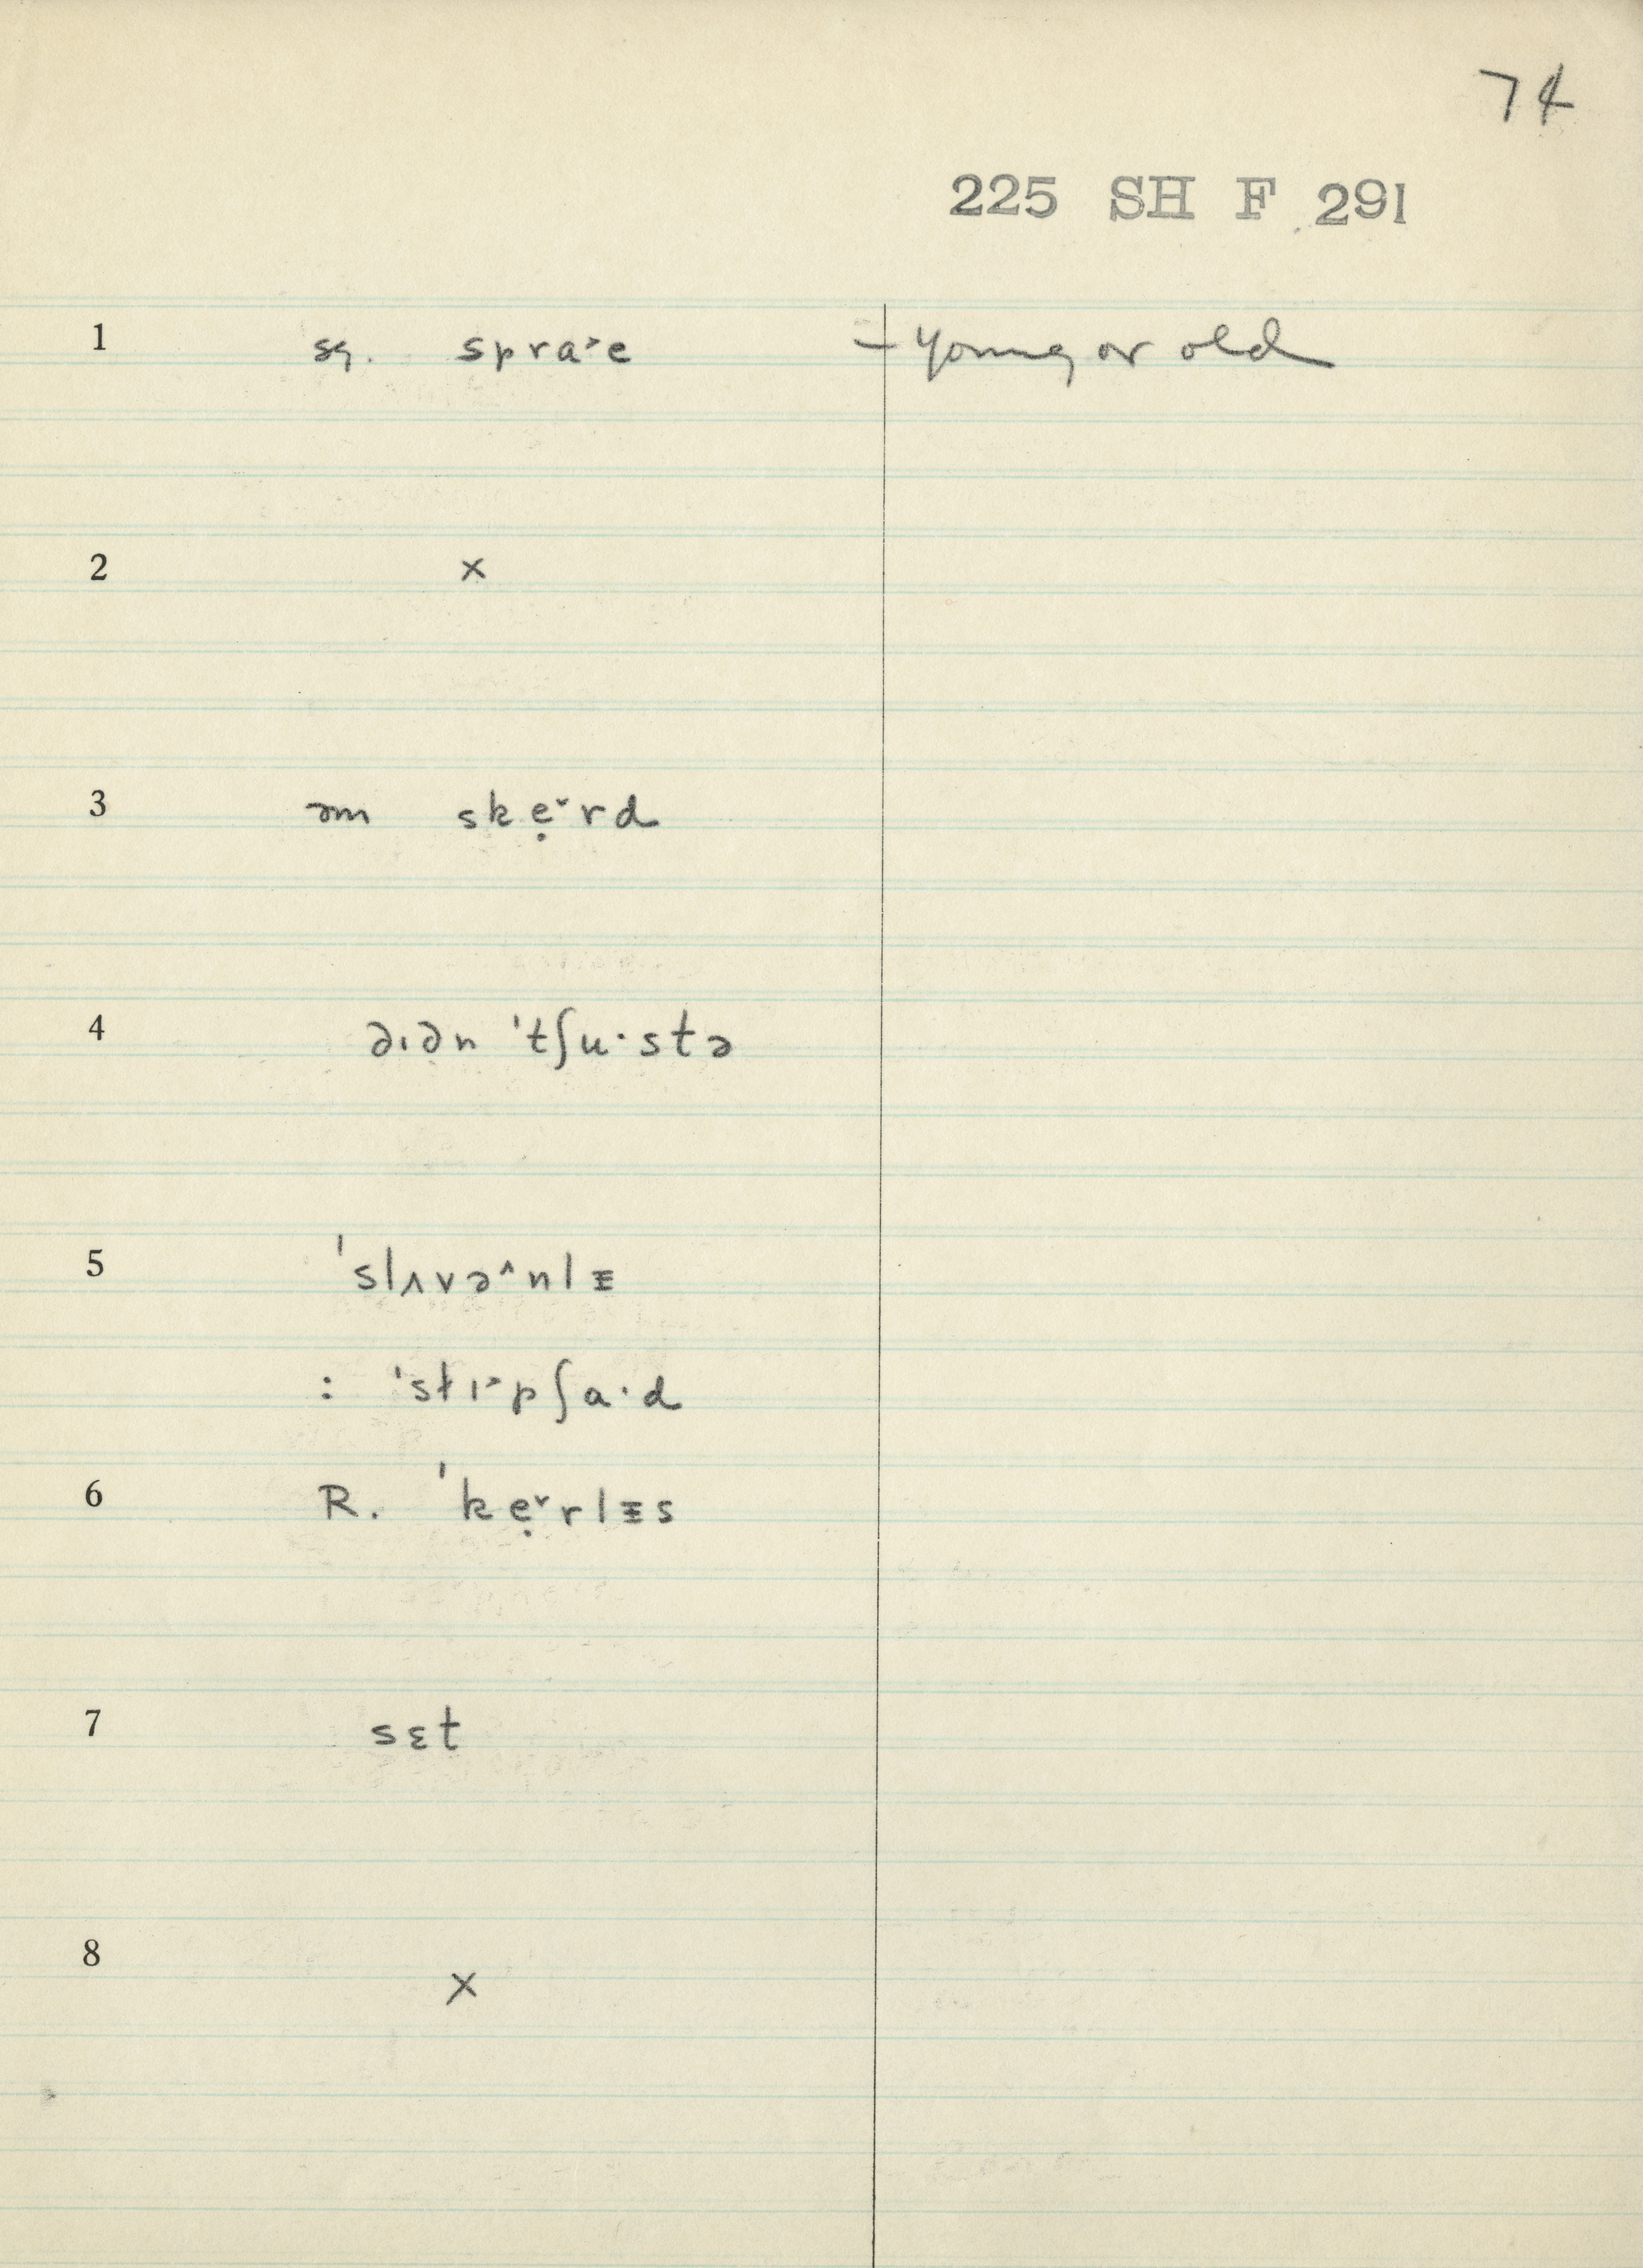 74
225 SH F 291
1 sq. spra˃e — young or old
2 ×
3 əm skẹ˅rd
4 ∂ı∂n 'tʃu·stə
5 'slʌvə^nlᵻ
: 'stɪ˃pʃa·d
6 R. 'kẹ˅rlᵻs
7 sɛt
8 ×